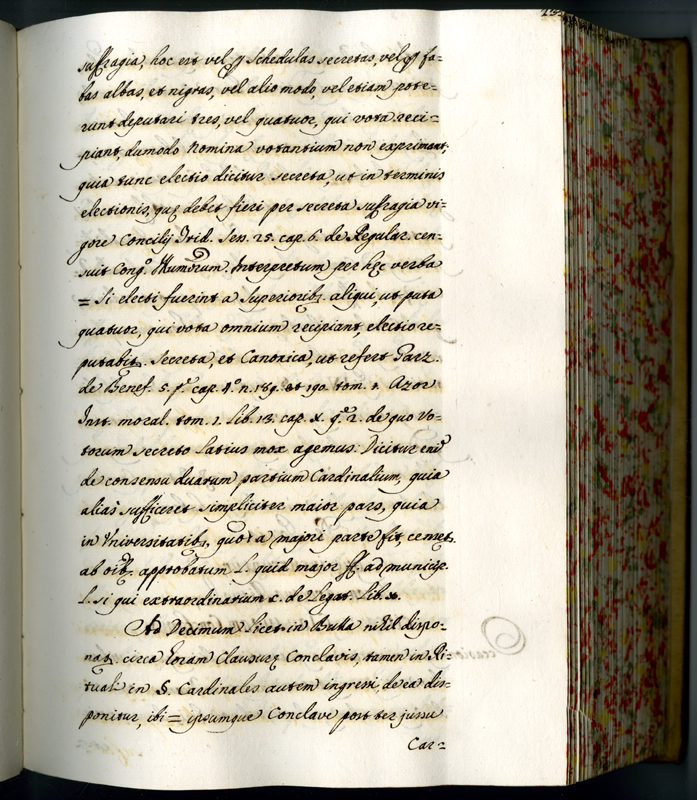 suffragia, hoc est vel p schedulas secretas, vel p fa=
bas albas, et nigras, vel alio modo, vel etiam pote-
runt deputari tres, vel quatuor, qui vota reci=
piant, dumodo Nomina votantium non exprimant,
quia tunc electio dicitur secreta, ut in terminis
electionis, quę debet fieri per secreta suffragia vi=
gore Concilij Trid. Sess. 25. cap. 6. de Regular. cen=
suit Cong.º Illumorum Interpretum per hęc verba
= Si electi fuerint a Superiorib. aliqui, ut puta
quatuor, qui vota omnium recipiant, electio re=
putabit. Secreta, et Canonica, ut refert Garz.
de Benef. 5. p.ᵉ cap. 4.º n. 189. et 190. tom. 1. Azor
Inst. moral. tom. 1. Lib. 13. cap. X. q.º 2. de quo Vo=
torum secreto latius mox agemus. Dicitur eni
de consensu duarum partium Cardinalium, quia
alias sufficeret simpliciter maior pars, quia
in Universitatib. quod a majori parte fit, censet.
ab oib. approbatum l. quid major ff. ad municip.
l. si qui extraordinarium c. de Legat. Lib. X.
Ad Decimum licet in Bulla nihil dispo=
nat. circa horam Clausurę Conclavis, tamen in Ri=
tuali in §. Cardinales autem ingressi, de ea dis=
ponitur, ibi = ipsumque Conclave post ter jussu
Car=